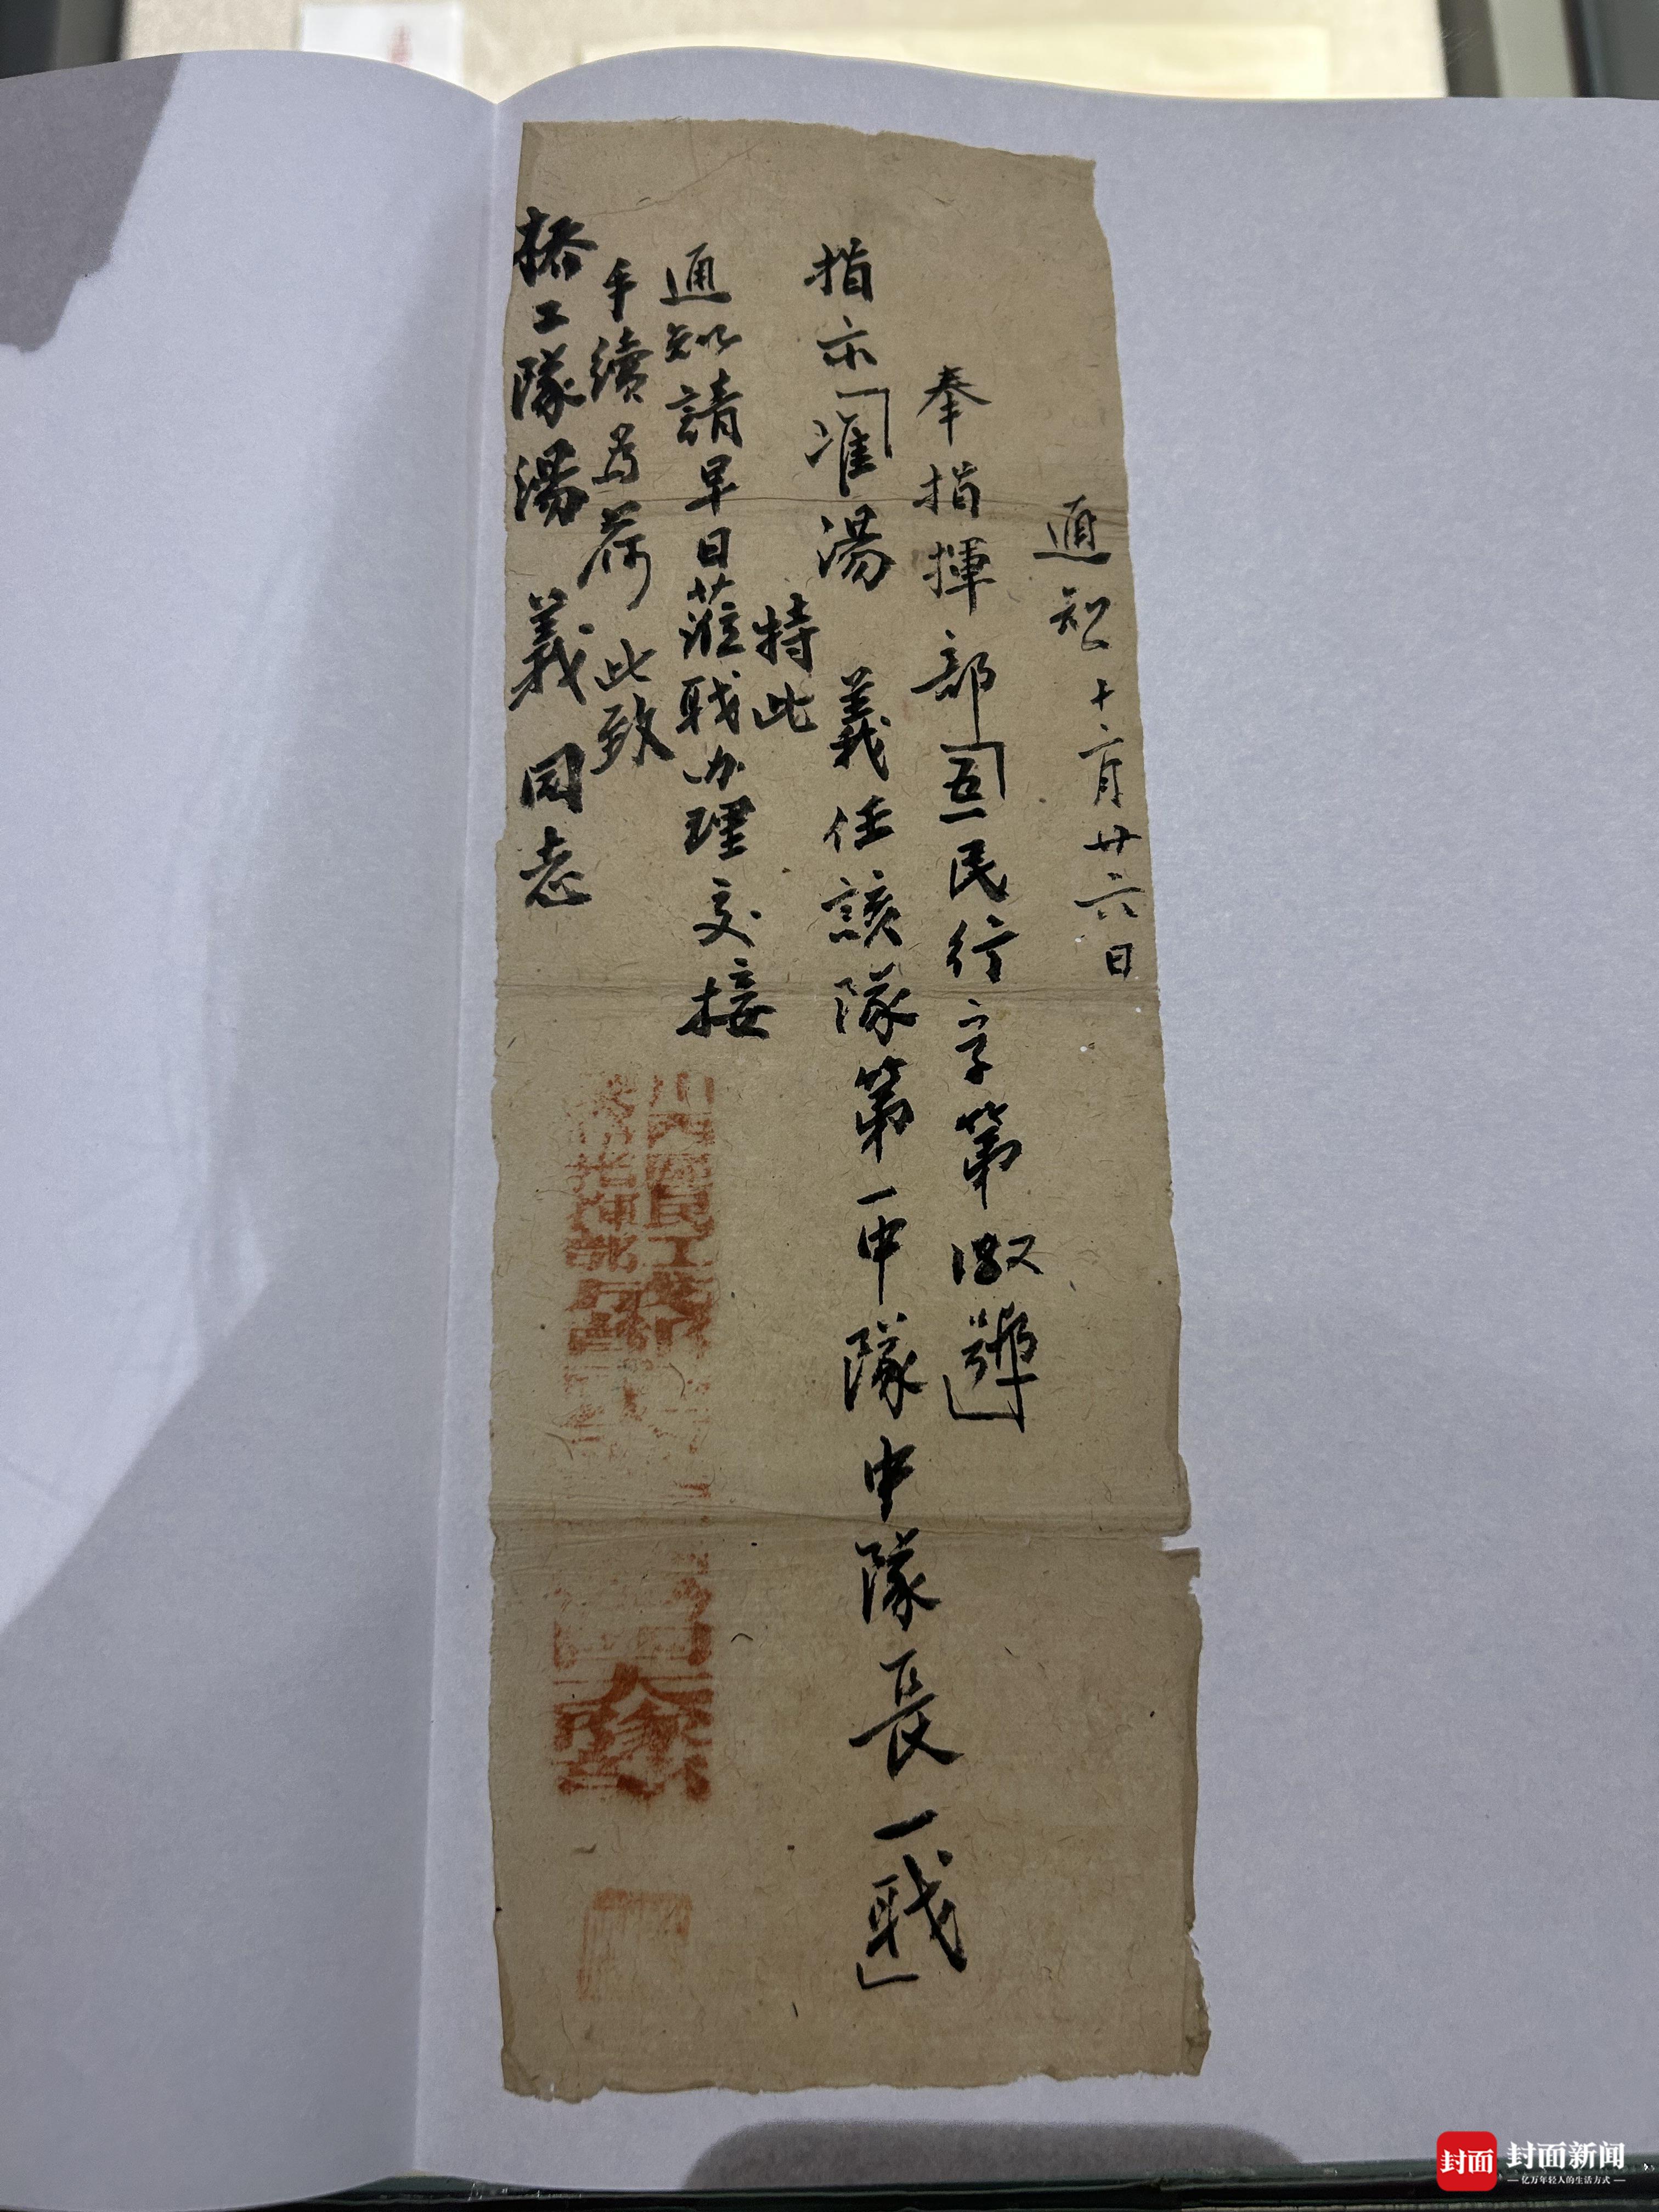 通知 十二月廿六日
奉指揮部「五一民行字第 號」
指示「准湯 義任該隊第一中隊中隊長一职」
特此
通知請早日蒞职办理交接
手續為荷 此致
桥工隊湯 義同志
川西區民工
指揮部
大隊
封面
封面新闻
亿万年轻人的生活方式